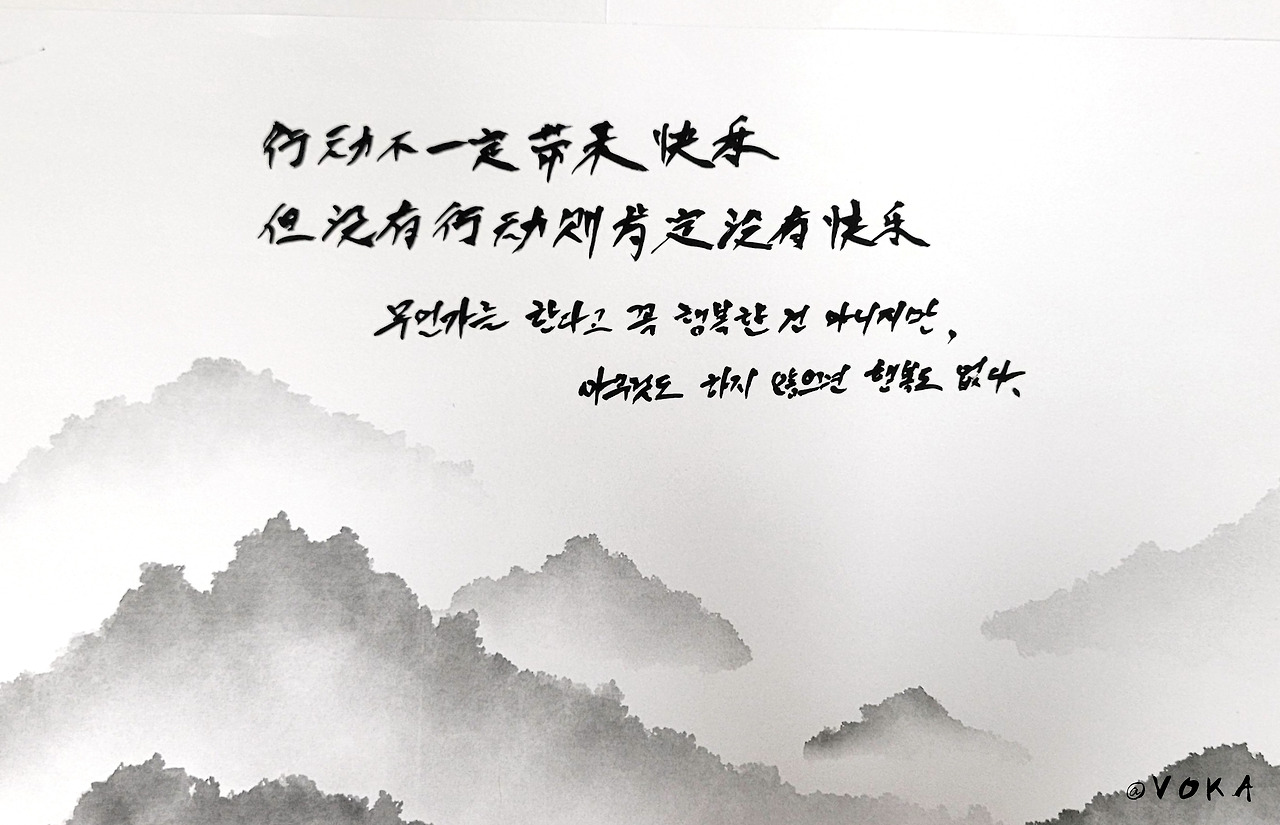 行动不一定带来快乐
但没有行动则肯定没有快乐
무언가를 한다고 꼭 행복한 건 아니지만,
아무것도 하지 않으면 행복도 없다.
@VOKA